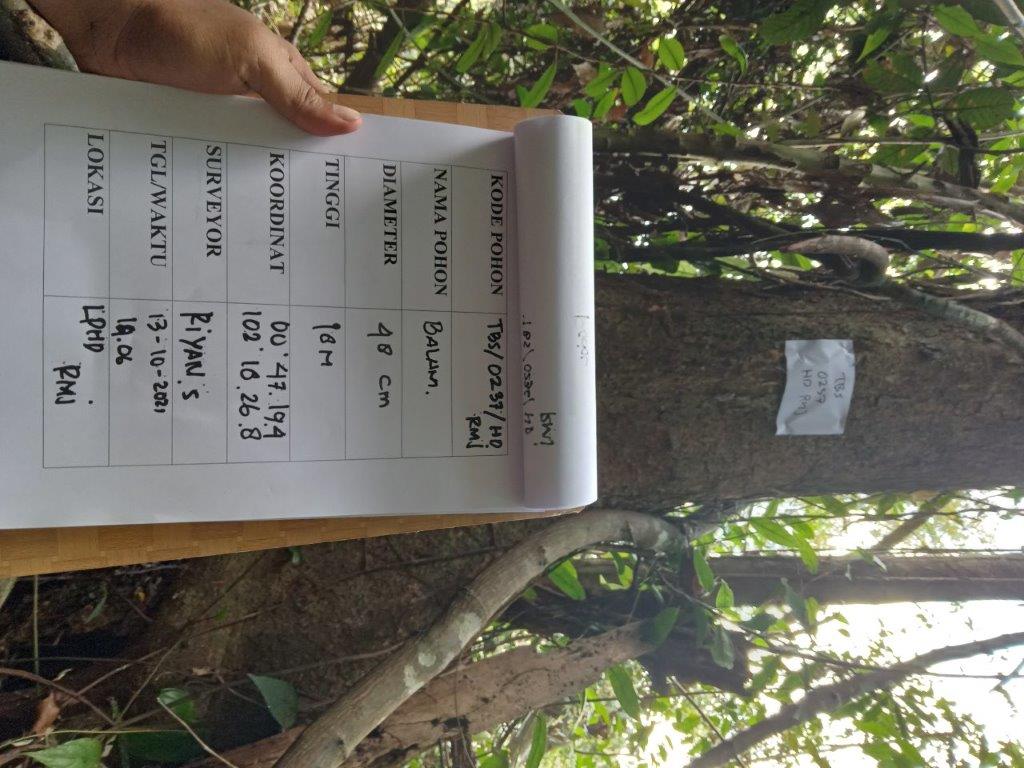 TBS
0237
HD RMJ
KODE POHON TBS/0237/HD
RMJ
NAMA POHON BALAM.
DIAMETER 48 cm
TINGGI 18M
KOORDINAT 00°47.19.4
102°18.26.8
SURVEYOR RiYAN.S
TGL/WAKTU 13-10-2021
LOKASI LPHD
RMJ